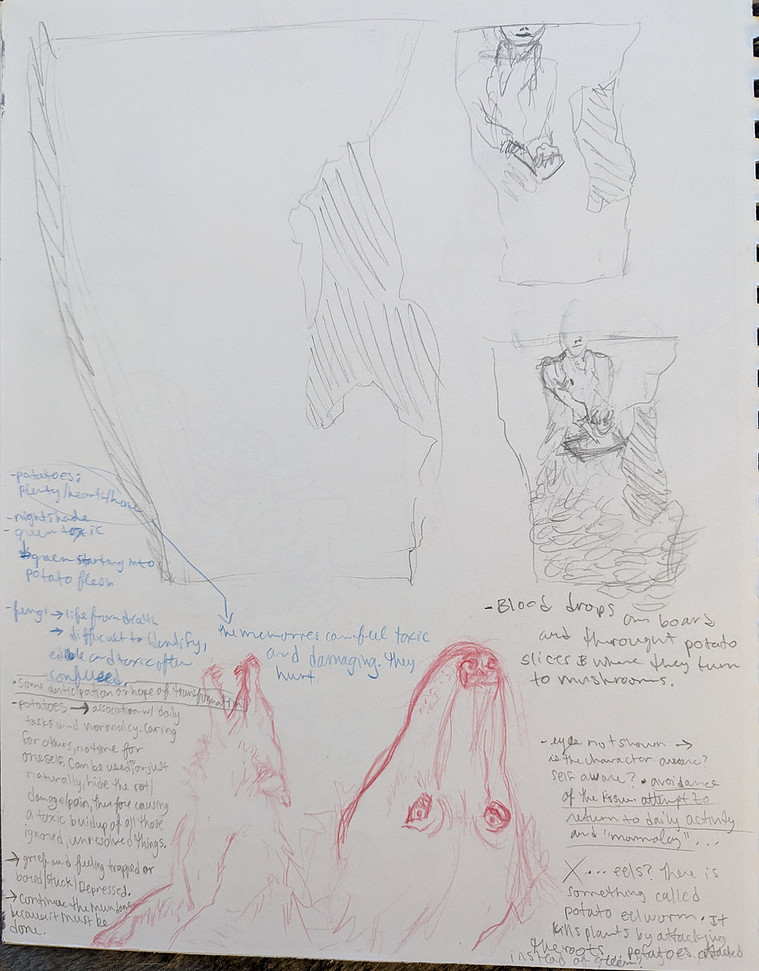 -potatoes:
plenty/hearth/home
-nightshade
-green toxic
green starting into
potato flesh
-fungi → life from death
→ difficult to identify,
edible and toxic often
confused.
the memories can feel toxic
and damaging. They
hurt.
• some anticipation or hope of transformation
-potatoes → association w/ daily
tasks and normalcy. Caring
for others, not one for
oneself. Can be used, or just
naturally, hide the rot/
damage/pain, therefore causing
a toxic buildup of all those
ignored, unresolved things.
→ grief and feeling trapped or
bored/stuck/depressed.
→ continue the mundane
because it must be
done.
-Blood drops on board
and throught potato
slices & where they turn
to mushrooms.
-eyes not shown →
is the character aware?
self aware? • avoidance
of the issue. attempt to
return to daily activity
and "normalcy"...
X.... eels? There is
something called
potato eelworm. It
kills plants by attacking
the roots. potatoes attacked
instead of